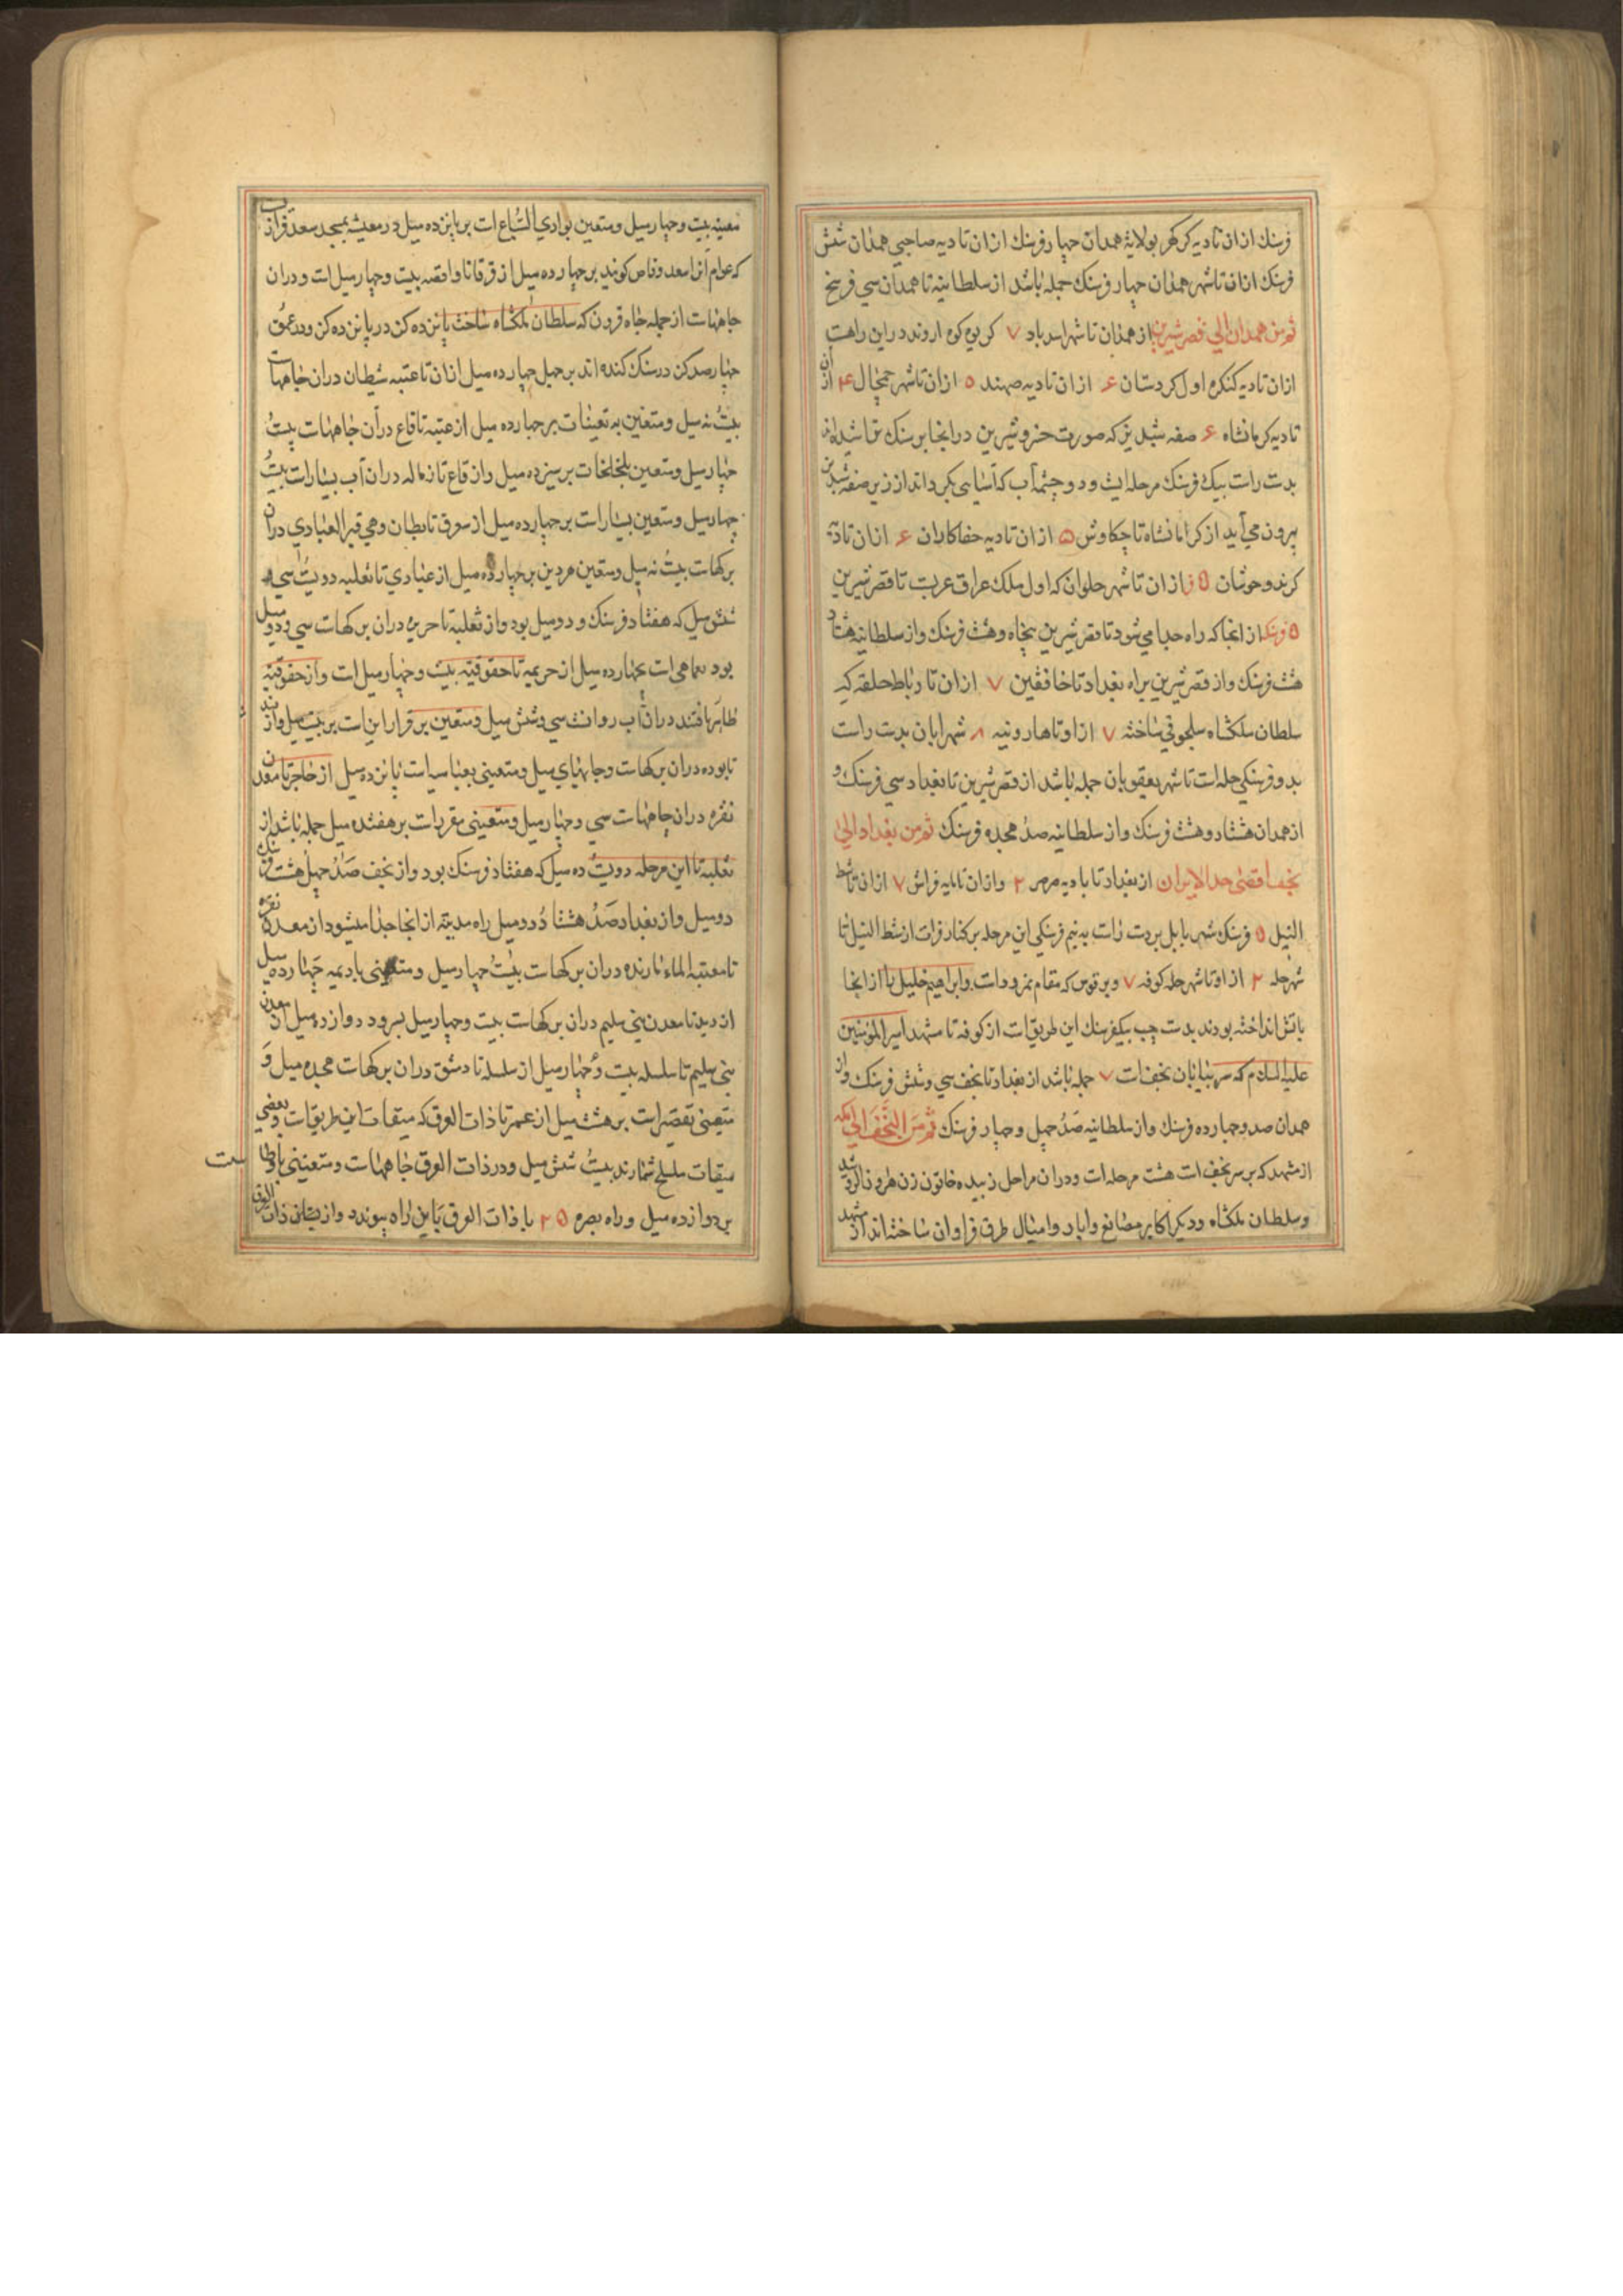 فرسنك ازان تا ديه كركهر بولاية همدان چهار فرسنك ازان تا ديه صاحبي همدان شش
فرسنك ازان تا شهر همدان چهار فرسنك جمله باشد از سلطانيه تا همدان سي فرسخ
ثم من همدان الي قصر شيرين از همدان تا شهر اسدباد ۷ كريوه كوه اروند در اين راهست
ازان تا ديه كنكره اول كردستان ۶ ازان تا ديه صهند ۵ ازان تا شهر جمجال ۴ از ان
تا ديه كرمانشاه ۶ صفه شبديز كه صورت خسرو و شيرين در انجا بر سنك نقاشيده اند
بدست راست بيك فرسنك مرحله ايست و دو چشمه آب كه آسيايي بكرداند از زير صفه شبديز
بيرون مي آيد از كرمانشاه تا چكاوش ۵ ازان تا ديه جفاكابران ۶ ازان تا ديه
كرند و خوشان ۵ ازان تا شهر حلوان كه اول ملك عراق عربست تا قصر شيرين
۵ فرسنك از انجا كه راه جدا مي شود تا قصر شيرين پنجاه و هشت فرسنك و از سلطانيه هشتاد
هشت فرسنك و از قصر شيرين براه بغداد تا خانقين ۷ ازان تا رباط حلقه كه
سلطان ملكشاه سلجوقي ساخته ۷ ازاو تا هارونيه ۸ شهرابان بدست راست
بدو فرسنكي حله است تا شهر يعقوبان جمله باشد از قصر شيرين تا بغداد سي فرسنك و
از همدان هشتاد و هشت فرسنك و از سلطانيه صد هجده فرسنك ثم من بغداد الي
نجف اقصي حد الايران از بغداد تا باديه صرصر ۲ و ازان تا مايه فراش ۷ ازان تا شط
النيل ۵ فرسنك شهر بابل بر دست راست به نيم فرسنكي اين مرحله بر كنار فرات از شط النيل تا
شهر حله ۲ از او تا شهر حله كوفه ۷ و برقوس كه مقام نمرود است و ابراهيم خليل را از انجا
باتش انداخته بودند بدست چپ بيكفرسنك اين طريق است از كوفه تا مشهد امير المؤمنين
عليه السلام كه سر بيابان نجفست ۷ جمله باشد از بغداد تا نجف سي و شش فرسنك و از
همدان صد و چهارده فرسنك و از سلطانيه صد چهل و چهار فرسنك ثم من النجف الي مكه
از مشهد كه بر سر نجف است هشت مرحله است و دران مراحل زبيده خاتون زن هرون الرشيد
و سلطان ملكشاه و ديكر اكابر مصانع و ابار و اميال طرق فراوان ساخته اند از مشهد
مغيثه بيست و چهار ميل و متعين بوادي السباع است بر پانزده ميل در مغيثه بمسجد سعد
كه عوام آنرا سعد وقاص كويند بر چهارده ميل از قرقانا واقصه بيست و چهار ميل است و دران
چاههاست از جمله چاه قرون كه سلطان ملكشاه ساخت پانزده كز در پانزده كز و در عمق
چهارصد كز در سنك كنده اند بر چهل چهارده ميل ازان تا عتبه شيطان دران چاههاست
بيست نه ميل و متعين به تعينات بر چهارده ميل از عتبه تا قاع در آن چاههاست بيست
چهار ميل و متعين بلجلخات بر سيزده ميل و از قاع تا زماله دران آب بسيار است بيست
چهار ميل و متعين بسيار است بر چهارده ميل از سوق تا بطان و هي قبر العبادي دران
بركهاست بيست نه ميل و متعين مردين بر چهارده ميل از عبادي تا ثعلبيه دويست سي
شش ميل كه هفتاد فرسنك و دو ميل بود و از ثعلبيه تا خريميه دران بركهاست سي و دو ميل
بود بماهي است بچهارده ميل از خريميه تا حقوقتيه بيست و چهار ميل است و از حقوقتيه
ظاهر يافتند دران آب روانست سي و شش ميل و متعين بر قرار اين است بر بيست ميل و از
تا بوده دران بركهاست و چاههاي ميل و متعيني بعباسيه است پانزده ميل از حاجر تا معدن
نقره دران چاههاست سي و چهار ميل و متعيني بقربات بر هفتده ميل جمله باشد از
ثعلبه تا اين مرحله دويست ده ميل كه هفتاد فرسنك بود و از نجف صد چهل هشت فرسنك
دو ميل و از بغداد صد هشتاد و دو ميل راه مدينه از انجا جدا ميشود از معدن نقره
تا مغيثه الماء نارنده دران بركهاست بيست چهار ميل و متعيني باديمه چهارده ميل
از ديد تا معدن بني سليم دران بركهاست بيست و چهار ميل بسرود دوازده ميل از معدن
بني سليم تا سلسله بيست و چهار ميل از سلسله تا دمشق دران بركهاست هجده ميل و
متعيني تقصير است بر هشت ميل از عمر تا ذات العرق كه ميقات اين طريق است و بعضي
ميقات مليلح شمارند بيست شش ميل و در ذات العرق چاههاست و متعيني باوطاست
بر دوازده ميل و راه بصره ۲۵ با ذات العرق باين راه پيوندد و از بستان ذات العرق